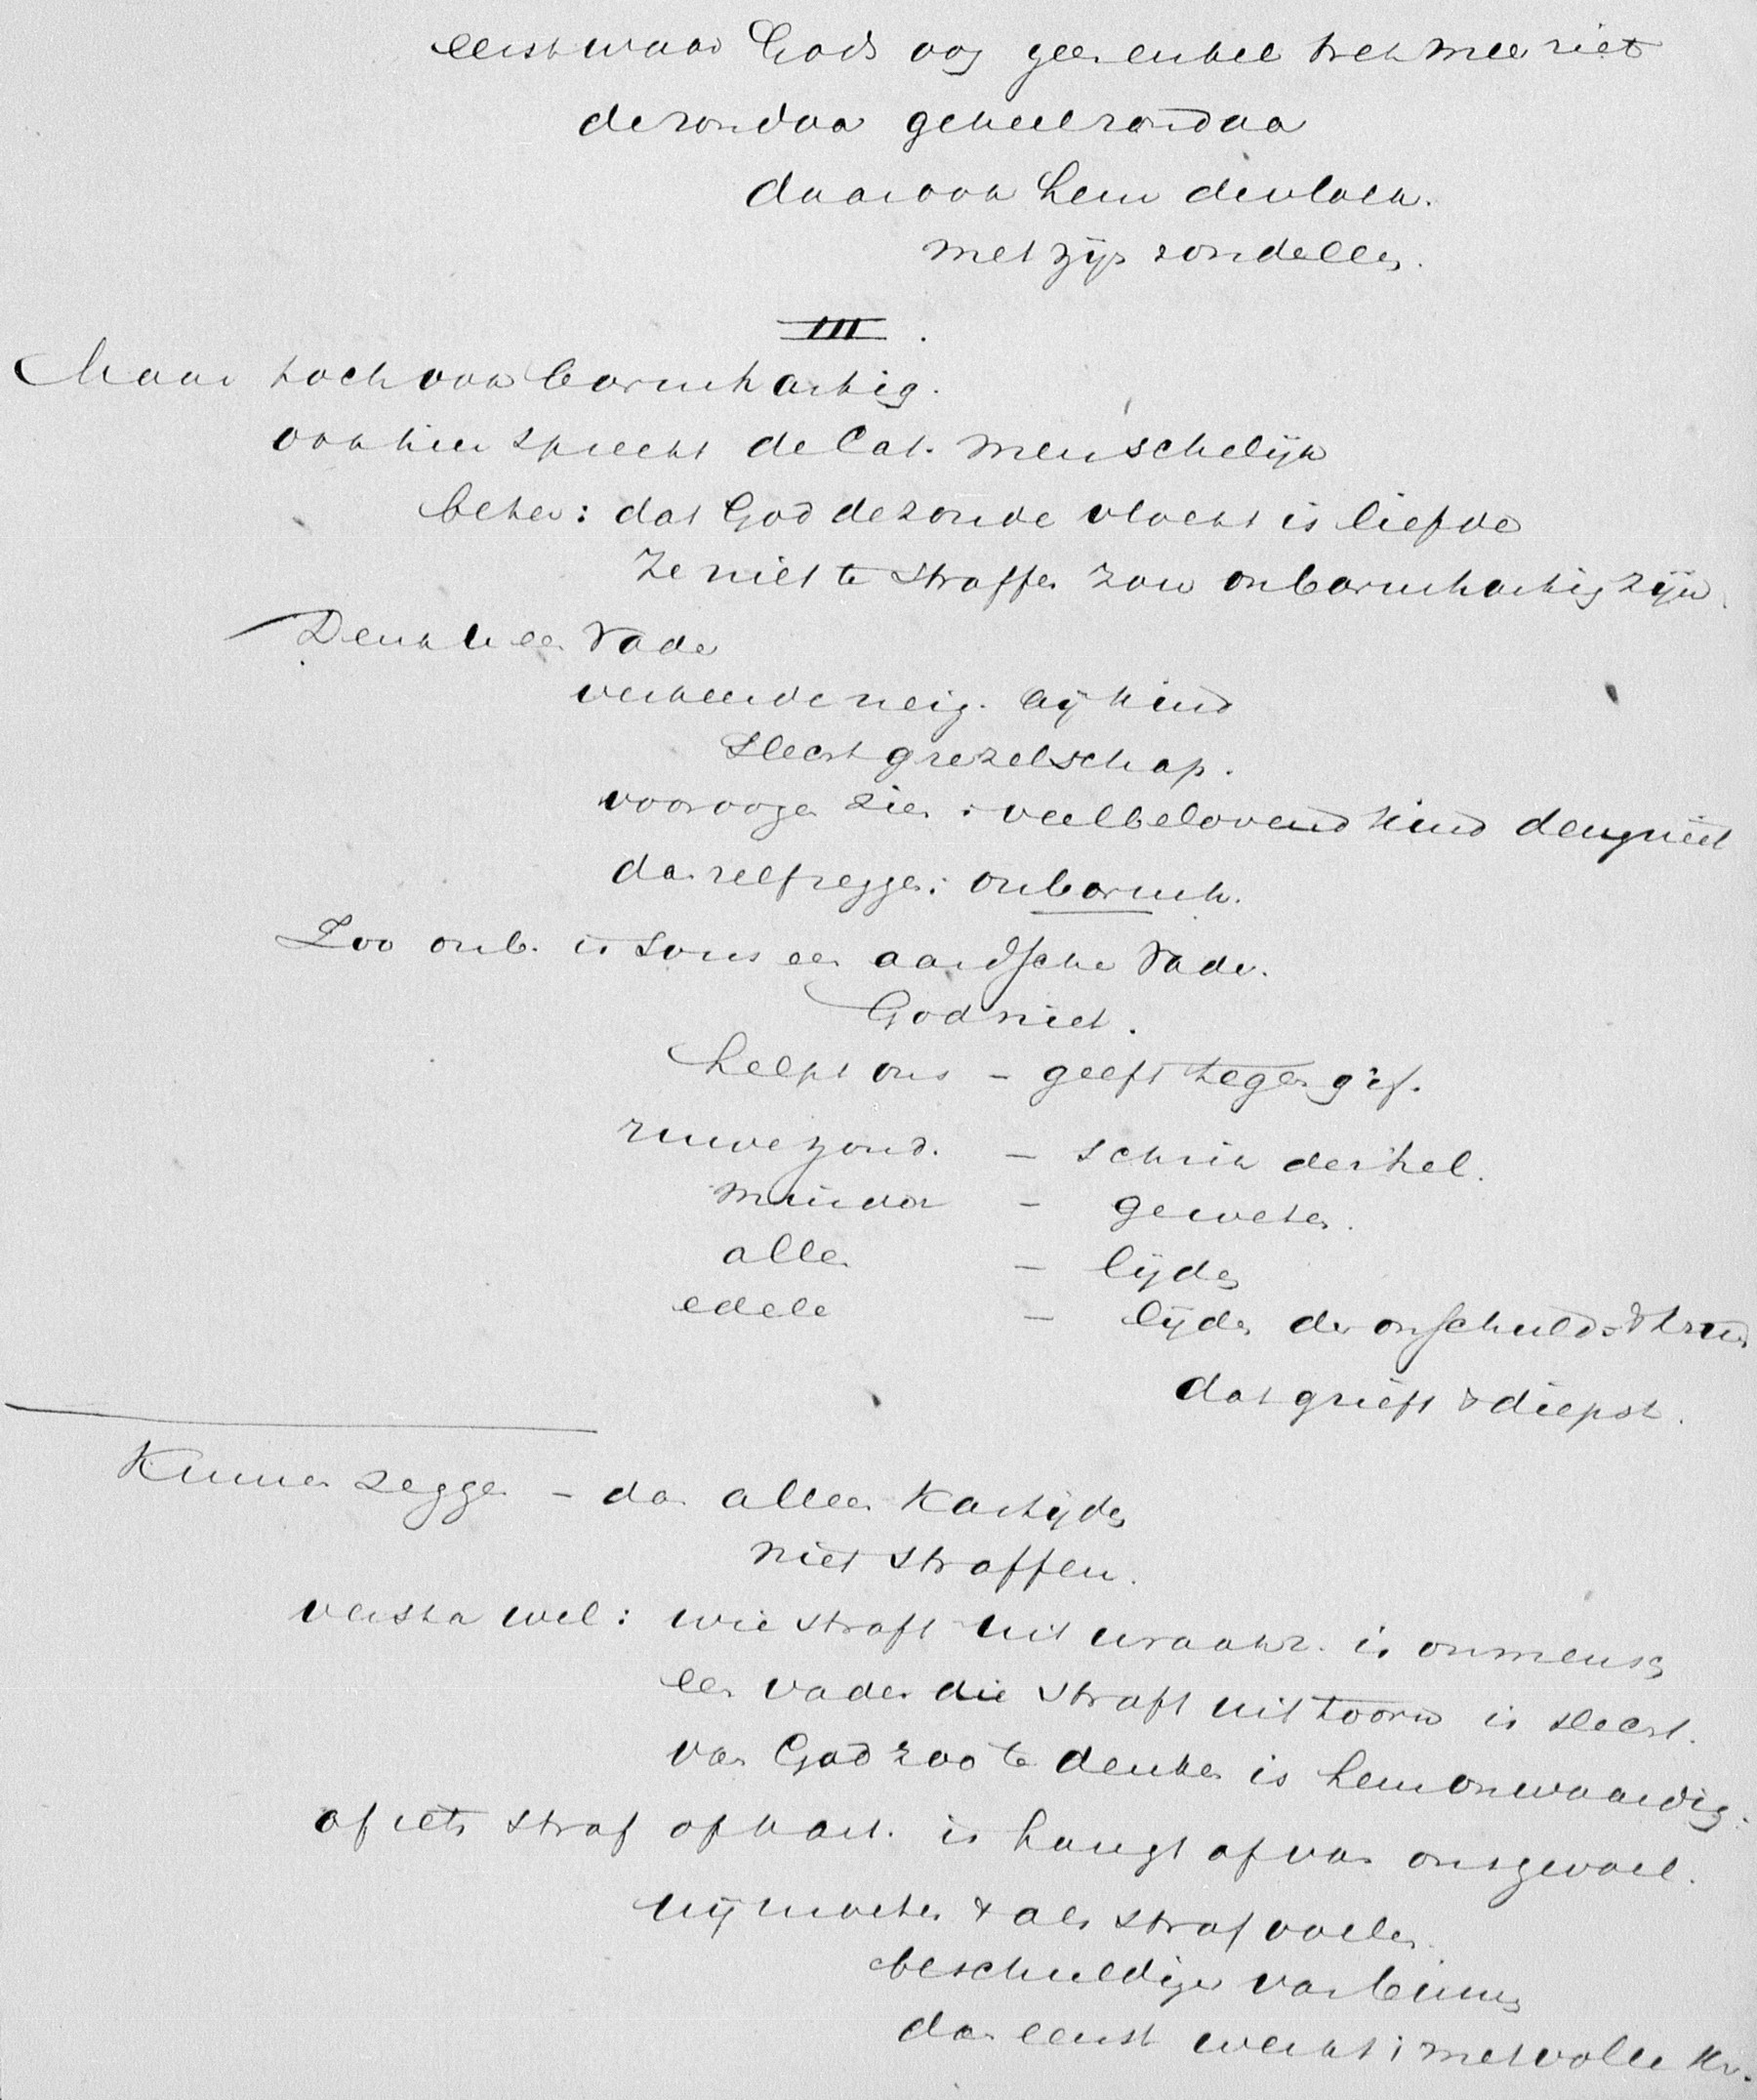 eerst waar Gods oog geen enkel trek meer ziet
de zondaar geheel zondaar
daar ook hem de vloek.
met zijn zondellen.
III.
Maar toch ook barmhartig.
ook hier spreekt de Cat. menschelijk
beter: dat God de zonde vloekt is liefde
ze niet te straffen zou onbarmhartig zijn.
Denk u een Vader
verkeerde neig. bij kind
slecht gezelschap.
voor oogen zien: veelbelovend kind deugniet
dan zelf zeggen: onbarmh.
Zoo onb. is soms een aardsche Vader.
God niet.
helpt ons – geeft tegengif.
ruwe zond. – schrik der hel.
minder – geweten.
allen – lijden
edele – lijden der onschuld
dat grieft 't diepst.
Kunnen zeggen – dan alleen Kastijden
niet straffen.
versta wel: wie straft uit wraakz. is onmensch
een vader die straft uit toorn is slecht.
van God zoo te denken is hem onwaardig.
of iets straf of kast. is hangt af van ons gevoel.
wij moeten 't als straf voelen
beschuldigen van binnen
dan eerst werkt 't met volle kr.